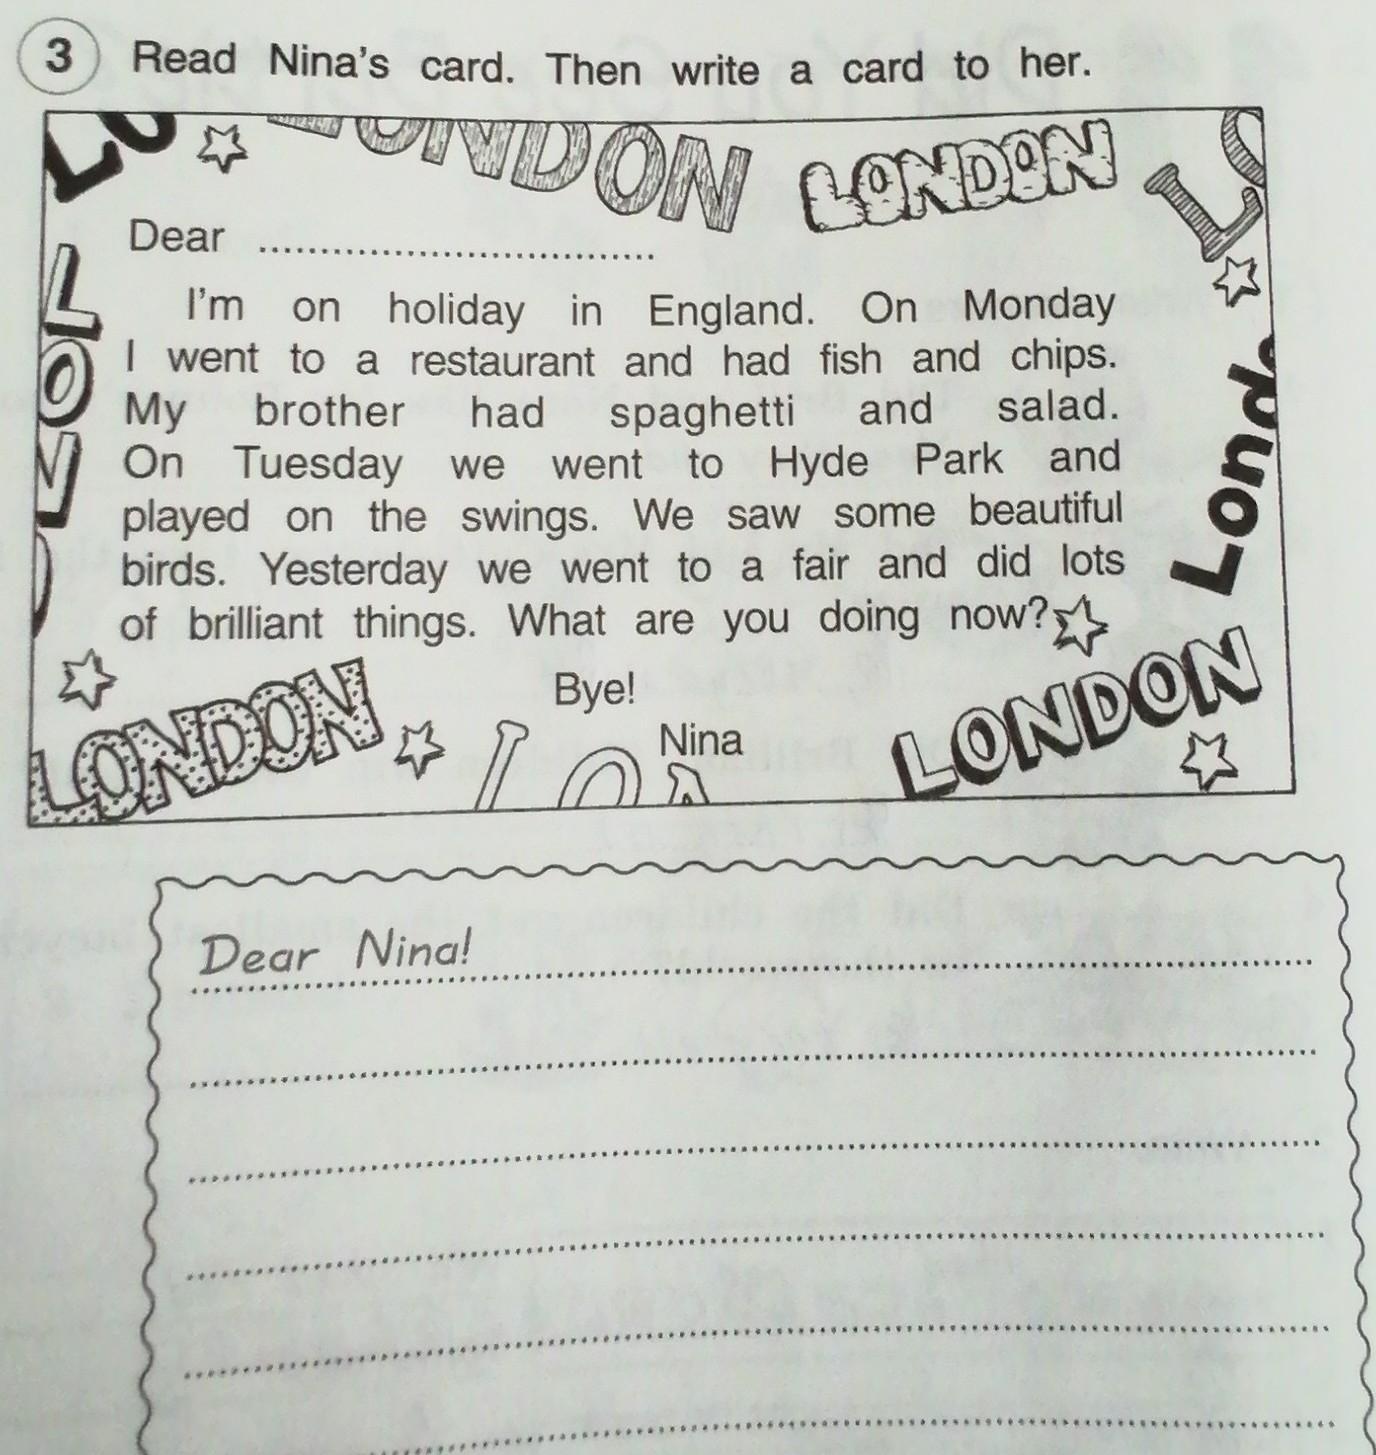 3 Read Nina's card. Then write a card to her.
LONDON
LONDON
Dear
I'm on holiday in England. On Monday
I went to a restaurant and had fish and chips.
My brother had spaghetti and salad.
On Tuesday we went to Hyde Park and
played on the swings. We saw some beautiful
birds. Yesterday we went to a fair and did lots
of brilliant things. What are you doing now?
Bye!
Nina
LONDON
LONDON
Dear Nina!